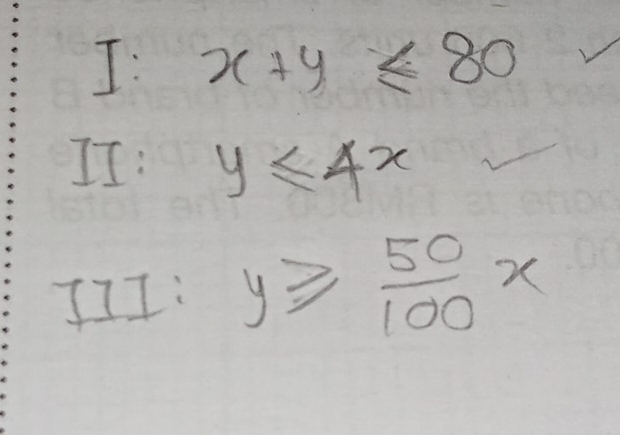 I: x+y ≤ 80 ✓
II: y ≤ 4x ✓
III: y ≥ 50/100 x